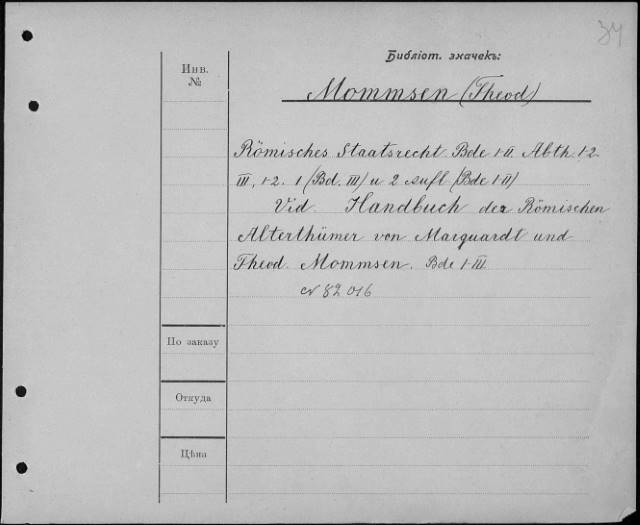 34
Библіот. значекъ:
Инв.
№
Mommsen (Theod)
Römisches Staatsrecht. Bde I-II. Abth. 1-2
III, 1-2. 1 (Bd. III) u 2 aufl (Bde I-II)
Vid. Handbuch der Römischen
Alterthümer von Marquardt und
Theod. Mommsen. Bde I-III.
82 016
По заказу
Откуда
Цѣна